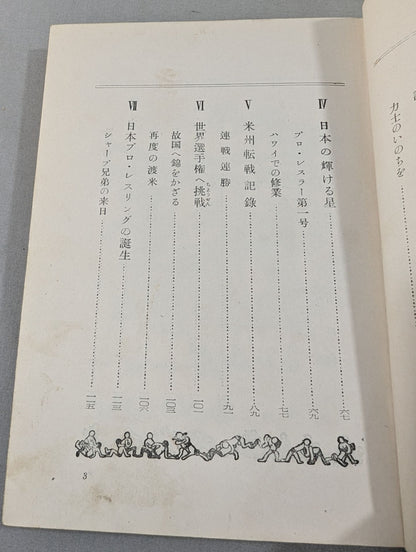 力士のいのちを
Ⅳ 日本の輝ける星 六七
プロ・レスラー第一号 六九
ハワイでの修業 七七
Ⅴ 米州転戦記録 八九
連戦連勝 九一
Ⅵ 世界選手権へ挑戦 一〇一
ちょうせん
故国へ錦をかざる 一〇三
再度の渡米 一〇六
Ⅶ 日本プロ・レスリングの誕生 一一三
シャープ兄弟の来日 一一五
3